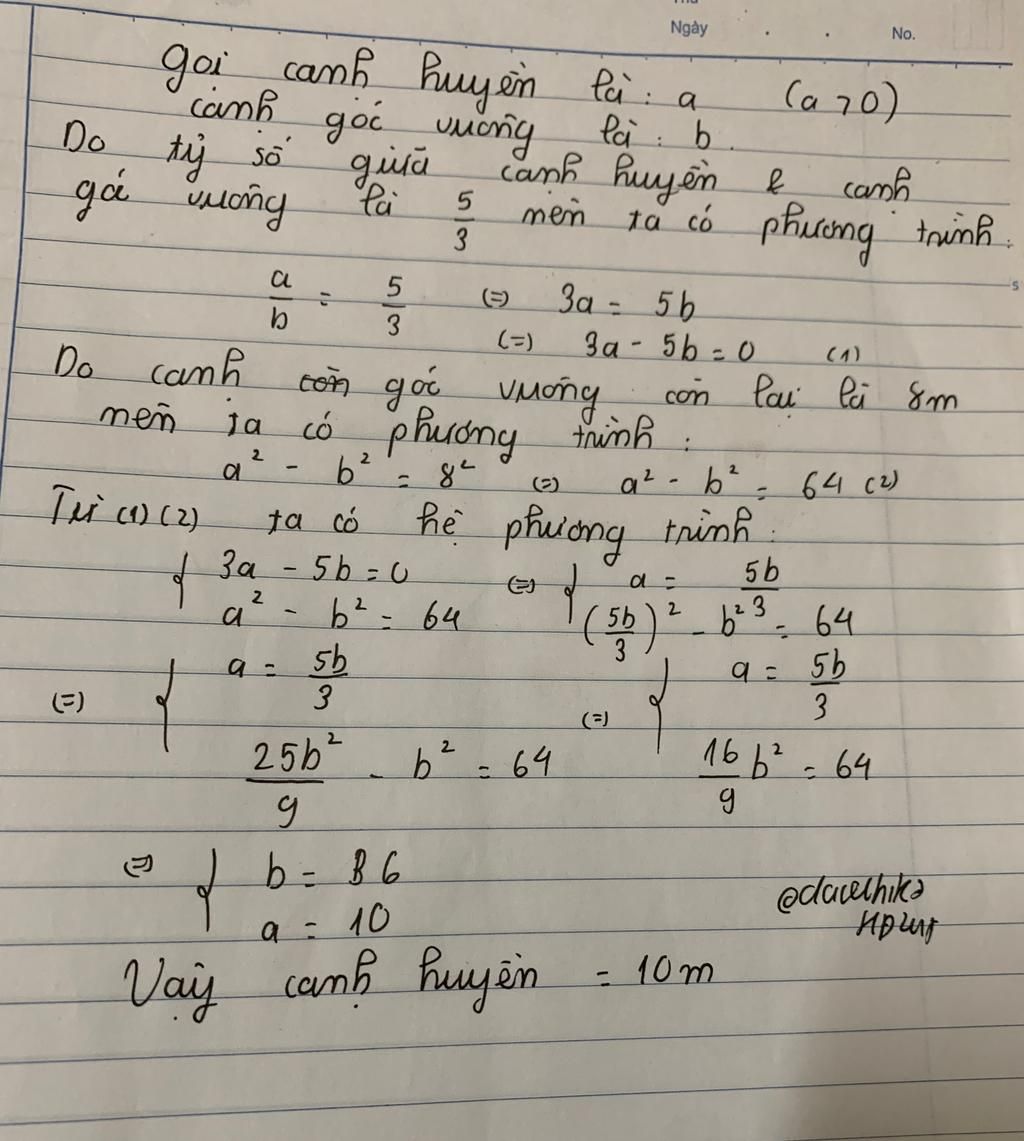 Ngày . . No.
Gọi canh huyền là : a (a > 0)
cảnh góc vuông là : b.
Do tỷ số giữa canh huyền & canh
gó vuông là 5/3 nên ta có phương trình :
a/b = 5/3 (=) 3a = 5b
(=) 3a - 5b = 0 (1)
Do canh còn góc vuông còn lại là 8m
nên ta có phương trình :
a² - b² = 8² (=) a² - b² = 64 (2)
Từ (1) (2) ta có hệ phương trình :
{ 3a - 5b = 0 (=) { a = 5b/3
a² - b² = 64 (5b/3)² - b² = 64
(=) { a = 5b/3 (=) { a = 5b/3
25b²/9 - b² = 64 16/9 b² = 64
(=) { b = 6
a = 10
Vậy cạnh huyền = 10m